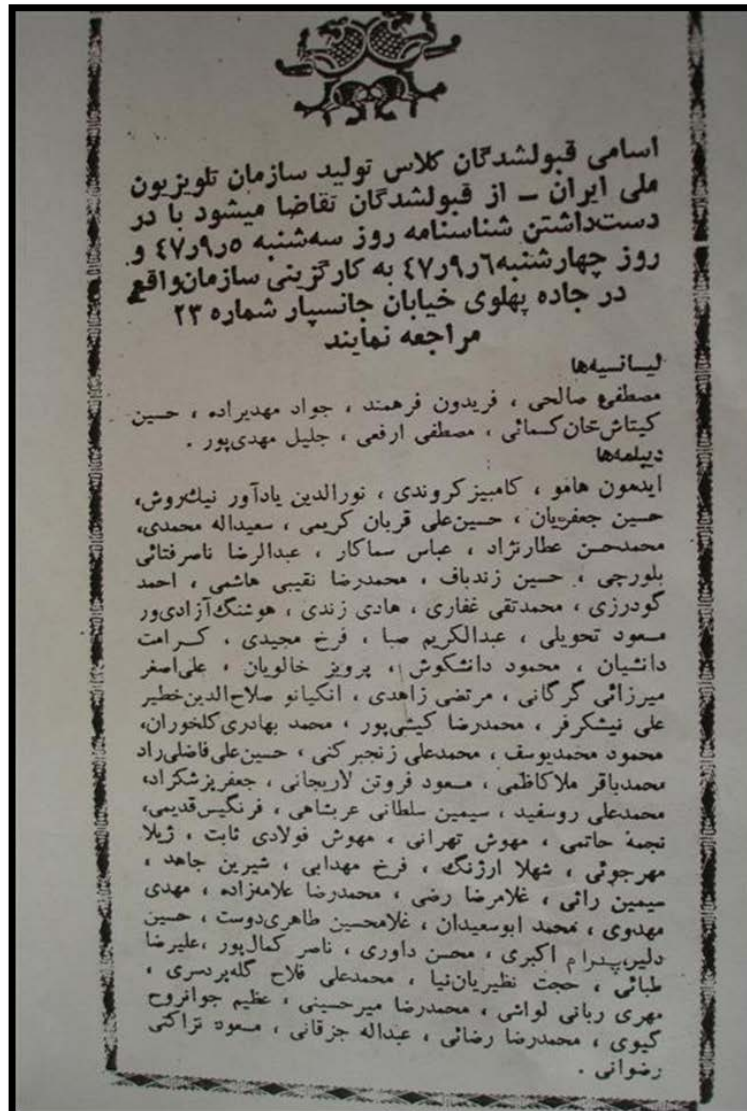 اسامی قبولشدگان کلاس تولید سازمان تلویزیون
ملی ایران ـ از قبولشدگان تقاضا میشود با در
دست‌داشتن شناسنامه روز سه‌شنبه ۵ر۹ر۴۷ و
روز چهارشنبه ۶ر۹ر۴۷ به کارگزینی سازمان واقع
در جاده پهلوی خیابان جانسپار شماره ۲۳
مراجعه نمایند
لیسانسیه‌ها
مصطفی صالحی ، فریدون فرهمند ، جواد مهدیزاده ، حسین
کیتاش‌خان کسمائی ، مصطفی ارفعی ، جلیل مهدی‌پور .
دیپلمه‌ها
ایدمون هامو ، کامبیز کروندی ، نورالدین یادآور نیک‌روش،
حسین جعفریان ، حسین‌علی قربان کریمی ، سعیداله محمدی،
محمدحسن عطارنژاد ، عباس سماکار ، عبدالرضا ناصر فتائی
بلورچی ، حسین زندباف ، محمدرضا نقیبی هاشمی ، احمد
گودرزی ، محمدتقی غفاری ، هادی زندی ، هوشنگ آزادی‌ور
مسعود تحویلی ، عبدالکریم صبا ، فرخ مجیدی ، کرامت
دانشیان ، محمود دانشکوش ، پرویز خالویان ، علی‌اصغر
میرزائی گرگانی ، مرتضی زاهدی ، انکیانو صلاح‌الدین خطیر
علی نیشکرفر ، محمدرضا کیشی‌پور ، محمد بهادری کلخوران،
محمود محمدیوسف ، محمدعلی زنجبرکنی ، حسین‌علی فاضلی‌راد
محمدباقر ملاکاظمی ، مسعود فروتن لاریجانی ، جعفر پزشکزاد،
محمدعلی روسفید ، سیمین سلطانی عربشاهی ، فرنگیس قدیمی،
نجمه حاتمی ، مهوش تهرانی ، مهوش فولادی ثابت ، ژیلا
مهرجوئی ، شهلا ارژنگ ، فرخ مهدابی ، شیرین جاهد ،
سیمین رائی ، غلامرضا رضی ، محمدرضا علامه‌زاده ، مهدی
مهدوی ، محمد ابوسعیدان ، غلامحسین طاهری‌دوست ، حسین
دلیر، پدرام اکبری ، محسن داوری ، ناصر کمال‌پور ، علیرضا
طبائی ، حجت نظیریان‌نیا ، محمدعلی فلاح گله‌پردسری ،
مهری ربانی لواشی ، محمدرضا میرحسینی ، عظیم جوانروح
گیوی ، محمدرضا رضائی ، عبداله جزقانی ، مسعود نزاکتی
رضوانی .